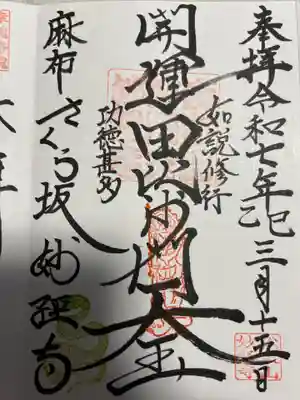 奉拝 令和七年乙巳三月十五日
如説修行
開運毘沙門天王
功徳甚多
麻布さくら坂 妙経寺